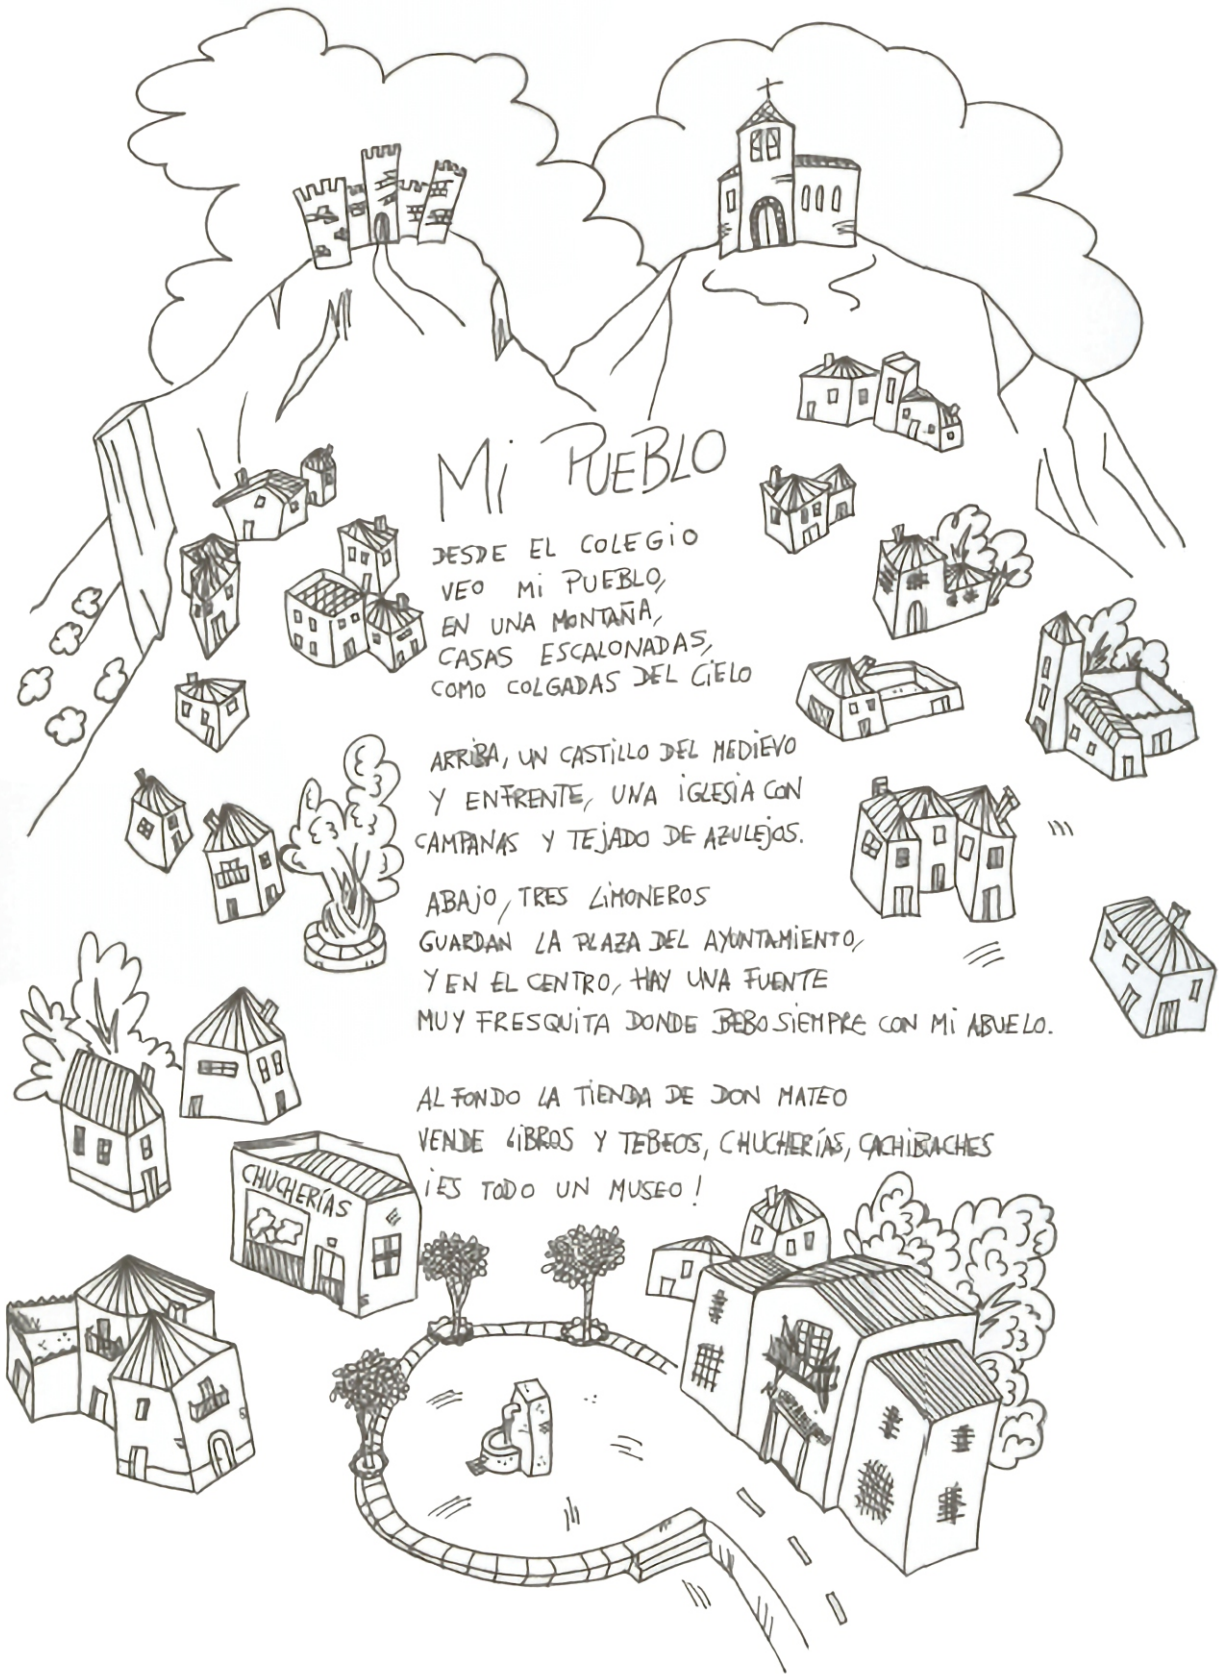 Mi PUEBLO
DESDE EL COLEGiO
VEO Mi PUEBLO,
EN UNA MONTAÑA,
CASAS ESCALONADAS,
COMO COLGADAS DEL CiELO
ARRiBA, UN CASTILLO DEL MEDIEVO
Y ENFRENTE, UNA iGLESiA CON
CAMPANAS Y TEJADO DE AZULEJOS.
ABAJO, TRES LiMONEROS
GUARDAN LA PLAZA DEL AYUNTAMiENTO,
Y EN EL CENTRO, HAY UNA FUENTE
MUY FRESQUiTA DONDE BEBO SiEMPRE CON Mi ABUELO.
AL FONDO LA TiENDA DE DON MATEO
VENDE LiBROS Y TEBEOS, CHUCHERÍAS, CACHIBACHES
¡ES TODO UN MUSEO!
CHUCHERÍAS